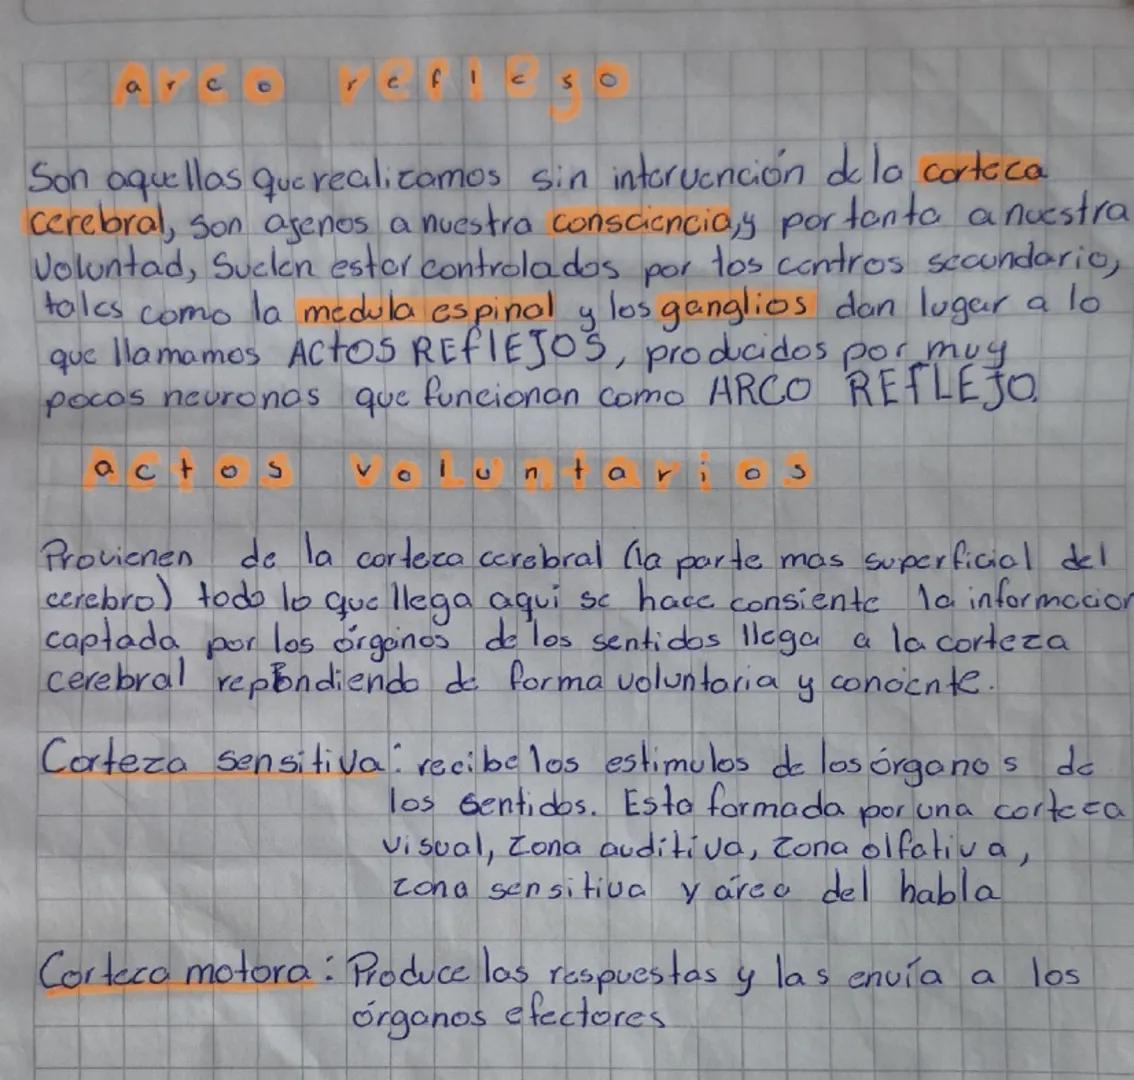 Arco reflejo
Son aquellas que realizamos sin intervención de la corteza
cerebral, son agenos a nuestra consciencia, y por tanto a nuestra
voluntad, Suelen estar controlados por los centros secundario,
tales como la medula espinal y los ganglios dan lugar a lo
que llamamos ACTOS REFLEJOS, producidos por muy
pocas neuronas que funcionan como ARCO REFLEJO.
actos voluntarios
Provienen de la corteza cerebral (la parte mas superficial del
cerebro) todo lo que llega aqui se hace consiente la informacion
captada por los órganos de los sentidos llega a la corteza
cerebral repondiendo de forma voluntaria y conciente.
Corteza sensitiva: recibe los estimulos de los órganos de
los sentidos. Esta formada por una corteza
visual, zona auditiva, zona olfativa,
zona sensitiva y área del habla
Corteza motora: Produce las respuestas y las envía a los
órganos efectores